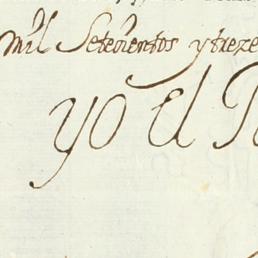 mil Setecientos y treze
yo el